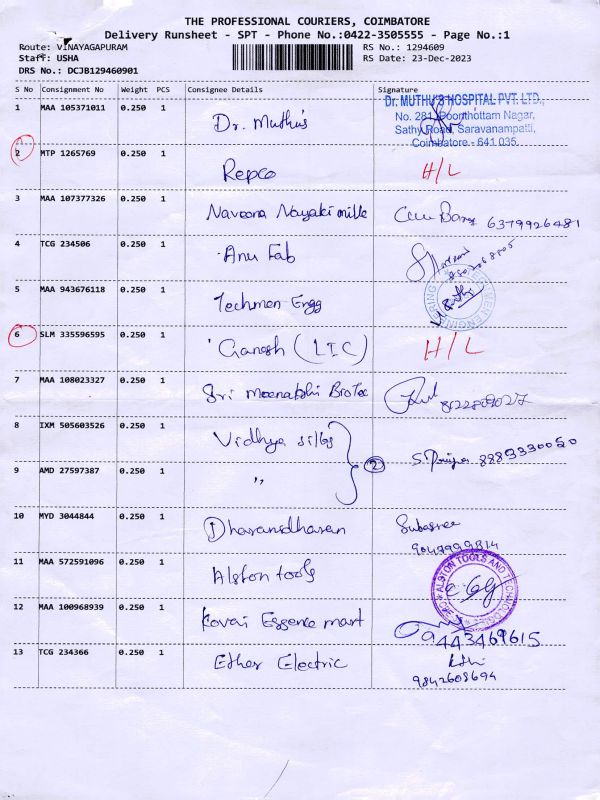 THE PROFESSIONAL COURIERS, COIMBATORE
Delivery Runsheet - SPT - Phone No.:0422-3505555 - Page No.:1
Route: VINAYAGAPURAM RS No.: 1294609
Staff: USHA RS Date: 23-Dec-2023
DRS No.: DCJB129460901
S No Consignment No Weight PCS Consignee Details Signature
1 MAA 105371011 0.250 1 Dr. Muthu's
Dr. MUTHU'S HOSPITAL PVT. LTD.,
No. 281, Poonthottam Nagar,
Sathy Road, Saravanampatti,
Coimbatore - 641 035.
2 MTP 1265769 0.250 1 Repco H/L
3 MAA 107377326 0.250 1 Naveena Nayaki mills 6379926481
4 TCG 234506 0.250 1 Anu Fab
5 MAA 943676118 0.250 1 Techmen Engg
6 SLM 335596595 0.250 1 Ganesh (LIC) H/L
7 MAA 108023327 0.250 1 Sri Meenakshi BioTec
8 IXM 505603526 0.250 1 Vidhya silks
9 AMD 27597387 0.250 1 " 2 S. Priya 8883330050
10 MYD 3044844 0.250 1 Dharanidharan Subasree
9047999814
11 MAA 572591096 0.250 1 Alston tools
ALSTON TOOLS AND TECHNOLOGIES
12 MAA 100968939 0.250 1 Kovai Essence mart
9443469615
13 TCG 234366 0.250 1 Ether Electric
9842608694